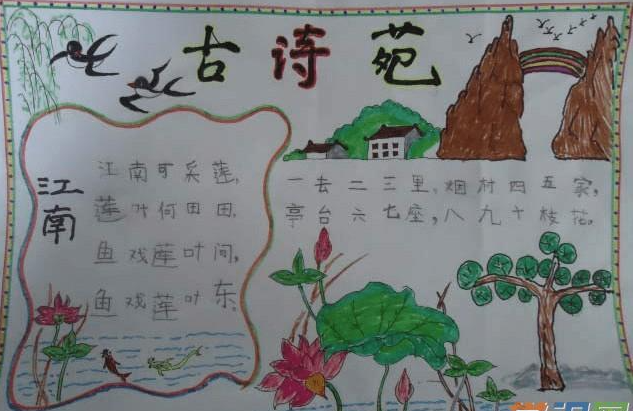 古诗苑
江南
江南可采莲,
莲叶何田田,
鱼戏莲叶间,
鱼戏莲叶东,
一去二三里,烟村四五家,
亭台六七座,八九十枝花。